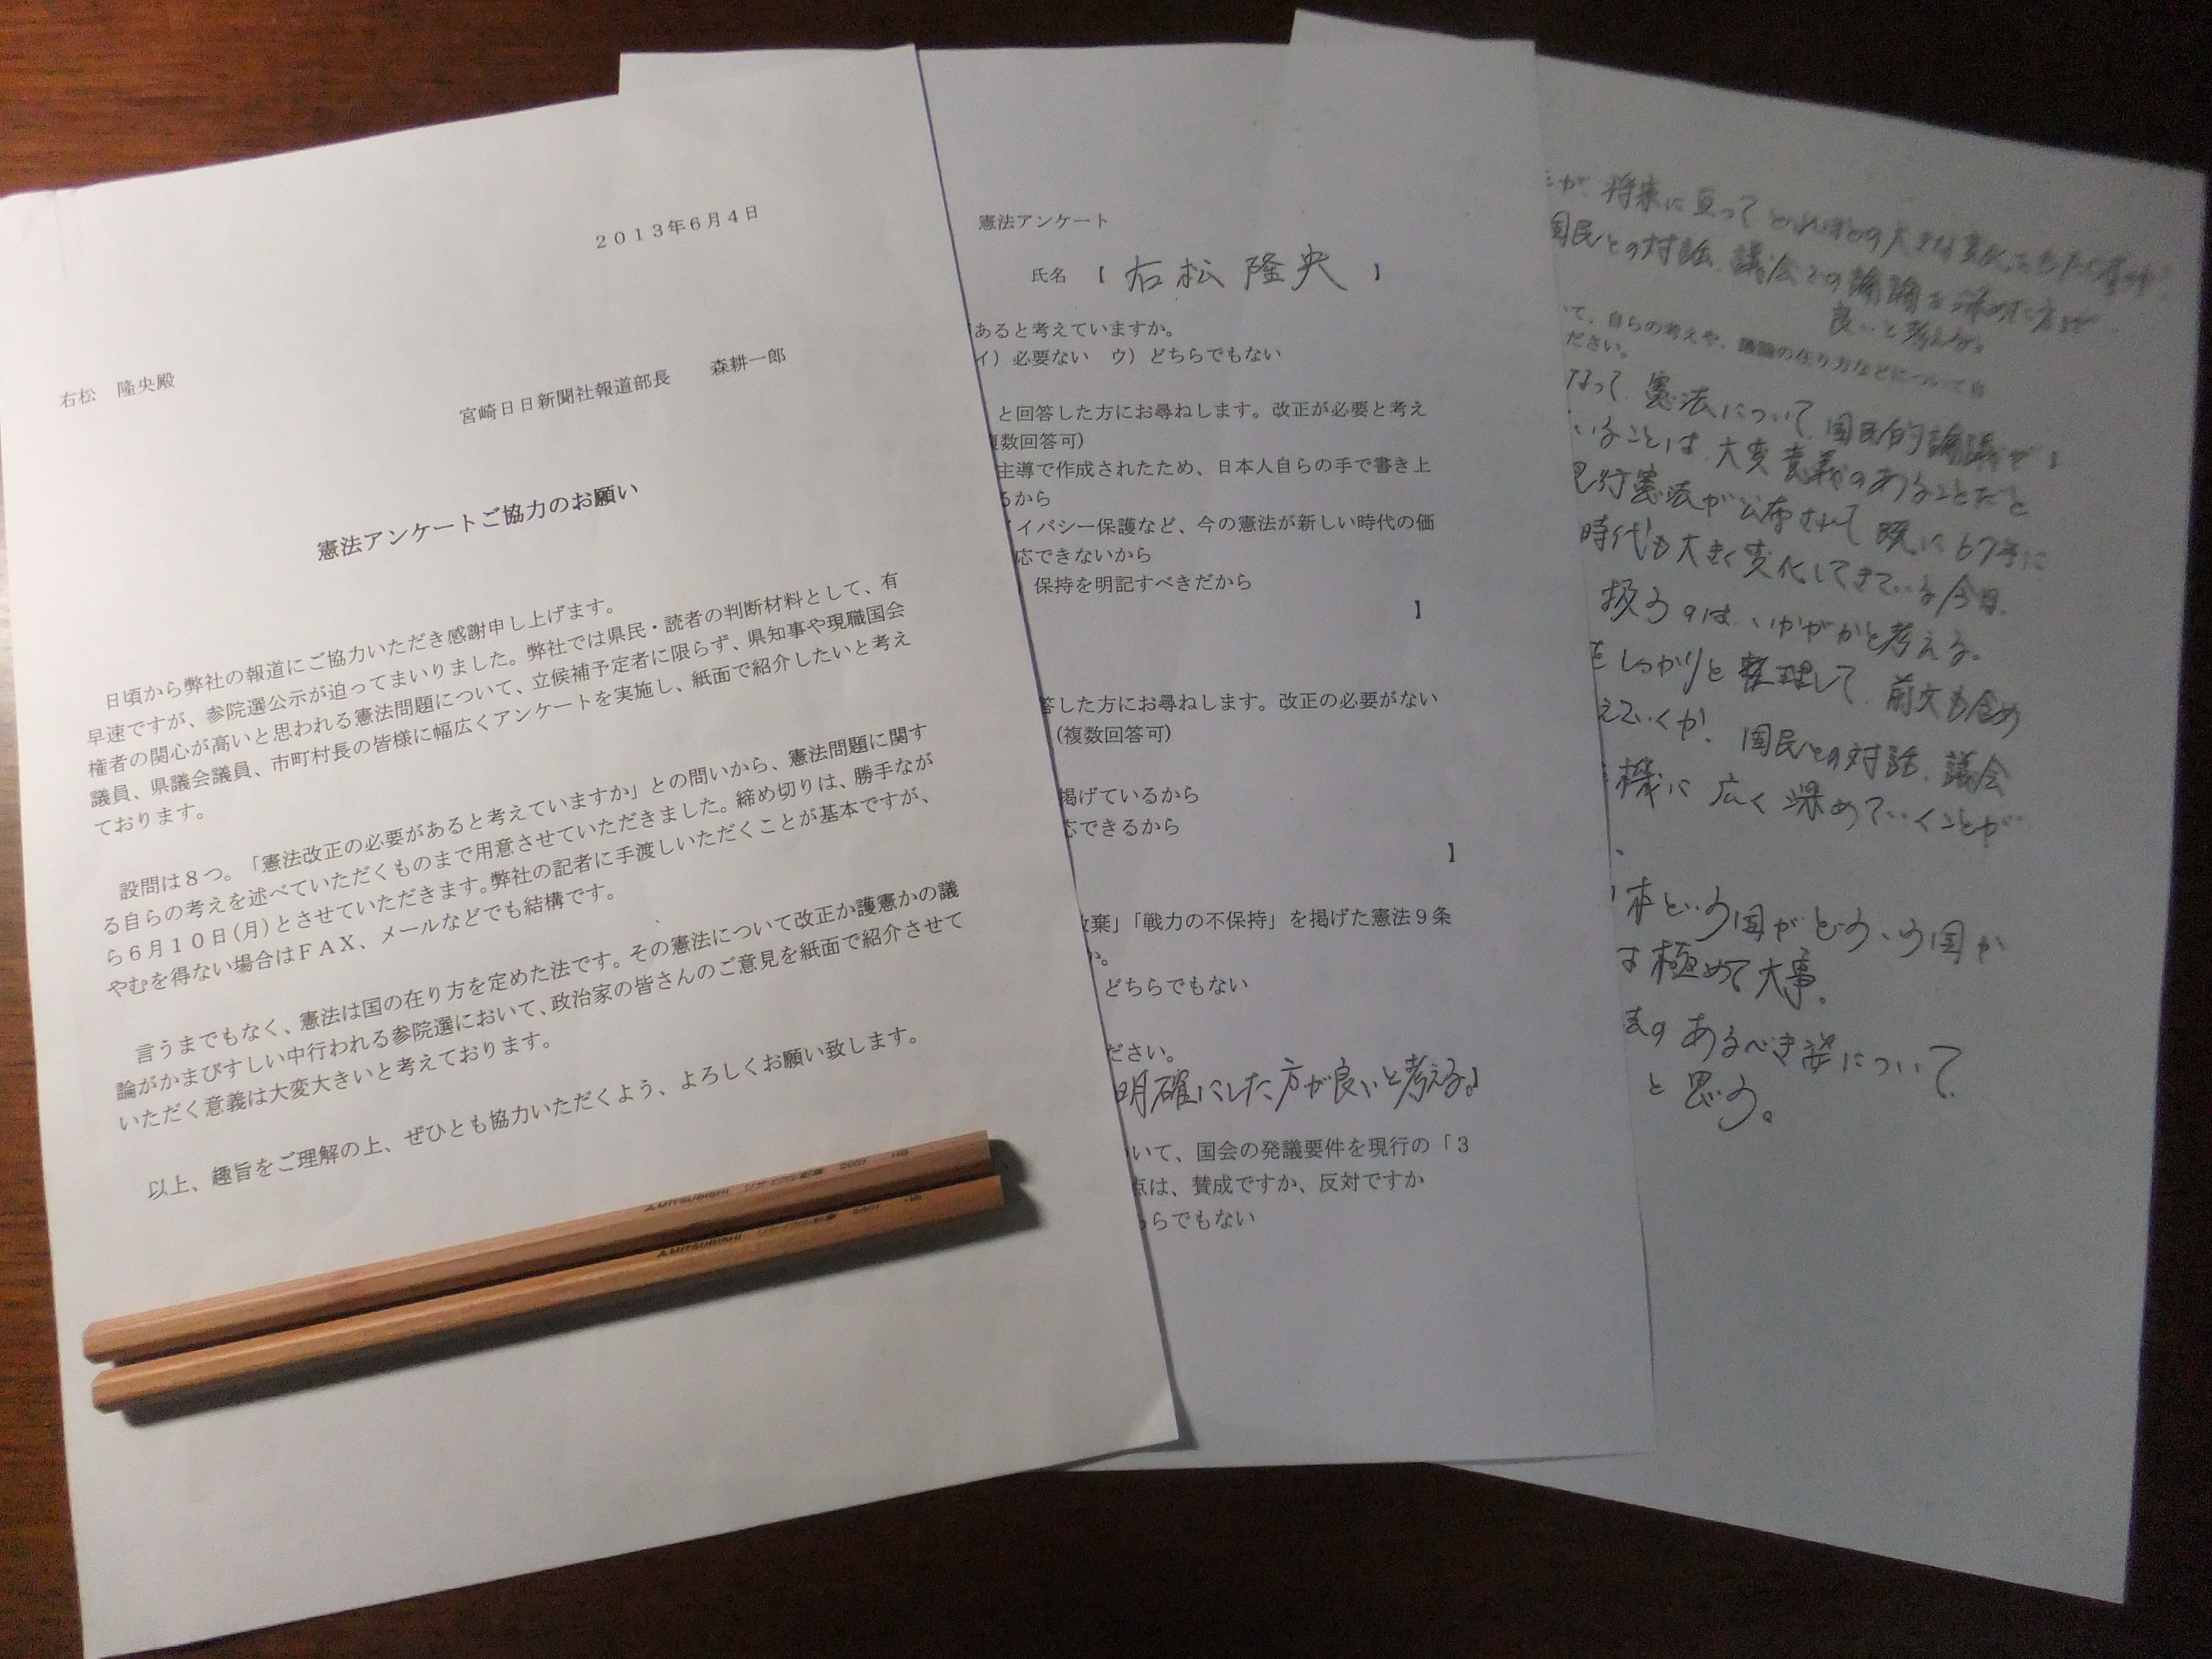 2013年6月4日
右松　隆央殿
宮崎日日新聞社報道部長　　森耕一郎
憲法アンケートご協力のお願い
日頃から弊社の報道にご協力いただき感謝申し上げます。
早速ですが、参院選公示が迫ってまいりました。弊社では県民・読者の判断材料として、有
権者の関心が高いと思われる憲法問題について、立候補予定者に限らず、県知事や現職国会
議員、県議会議員、市町村長の皆様に幅広くアンケートを実施し、紙面で紹介したいと考え
ております。
設問は8つ。「憲法改正の必要があると考えていますか」との問いから、憲法問題に関す
る自らの考えを述べていただくものまで用意させていただきました。締め切りは、勝手なが
ら6月10日(月)とさせていただきます。弊社の記者に手渡しいただくことが基本ですが、
やむを得ない場合はFAX、メールなどでも結構です。
言うまでもなく、憲法は国の在り方を定めた法です。その憲法について改正か護憲かの議
論がかまびすしい中行われる参院選において、政治家の皆さんのご意見を紙面で紹介させて
いただく意義は大変大きいと考えております。
以上、趣旨をご理解の上、ぜひとも協力いただくよう、よろしくお願い致します。
MITSUBISHI リサイクル鉛筆 9801 HB
MITSUBISHI リサイクル鉛筆 9801 HB
憲法アンケート
氏名　【 右松 隆央 】
あると考えていますか。
イ）必要ない　ウ）どちらでもない
と回答した方にお尋ねします。改正が必要と考え
複数回答可）
主導で作成されたため、日本人自らの手で書き上
るから
イバシー保護など、今の憲法が新しい時代の価
応できないから
保持を明記すべきだから
】
答した方にお尋ねします。改正の必要がない
（複数回答可）
掲げているから
応できるから
】
放棄」「戦力の不保持」を掲げた憲法9条
か。
どちらでもない
ださい。
明確にした方が良いと考える。】
いて、国会の発議要件を現行の「3
点は、賛成ですか、反対ですか
ちらでもない
が、将来に亘ってどれほどの大きな変化をもたらす
国民との対話、議会での論議を深めた方が
良いと考える。
いて、自らの考えや、議論の在り方などについて自
ださい。
なって、憲法について、国民的論議が
いることは、大変意義のあることだと
現行憲法が公布されて既に67年に
時代も大きく変化してきている今日、
扱うのは、いかがかと考える。
をしっかりと整理して、前文も含め
えていくか、国民との対話、議会
機に広く深めていくことが
本という国がどういう国か
は極めて大事。
法のあるべき姿について
と思う。